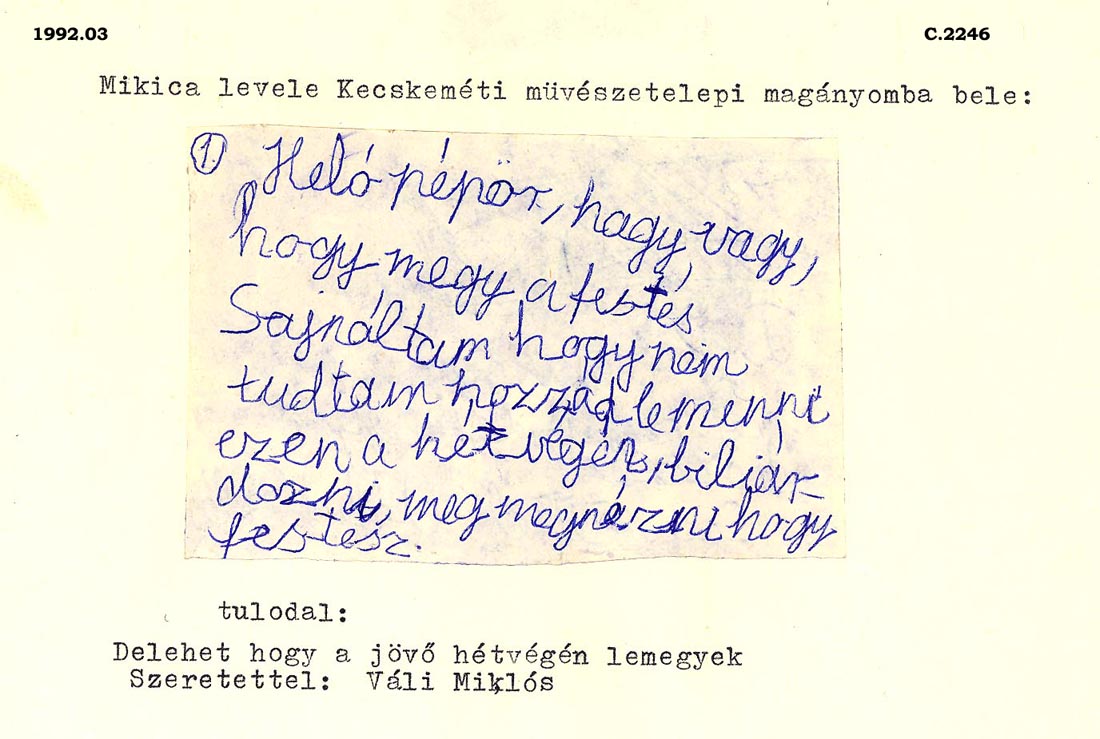 1992.03
C.2246
Mikica levele Kecskeméti müvészetelepi magányomba bele:
1. Heló pépör, hagy vagy,
hogy megy a festés
Sajnáltam hogy nem
tudtam hozzád lemenni
ezen a hétvégén, biliár-
dozni, meg megnézni hogy
festesz.
tulodal:
Delehet hogy a jövő hétvégén lemegyek
Szeretettel: Váli Miklós